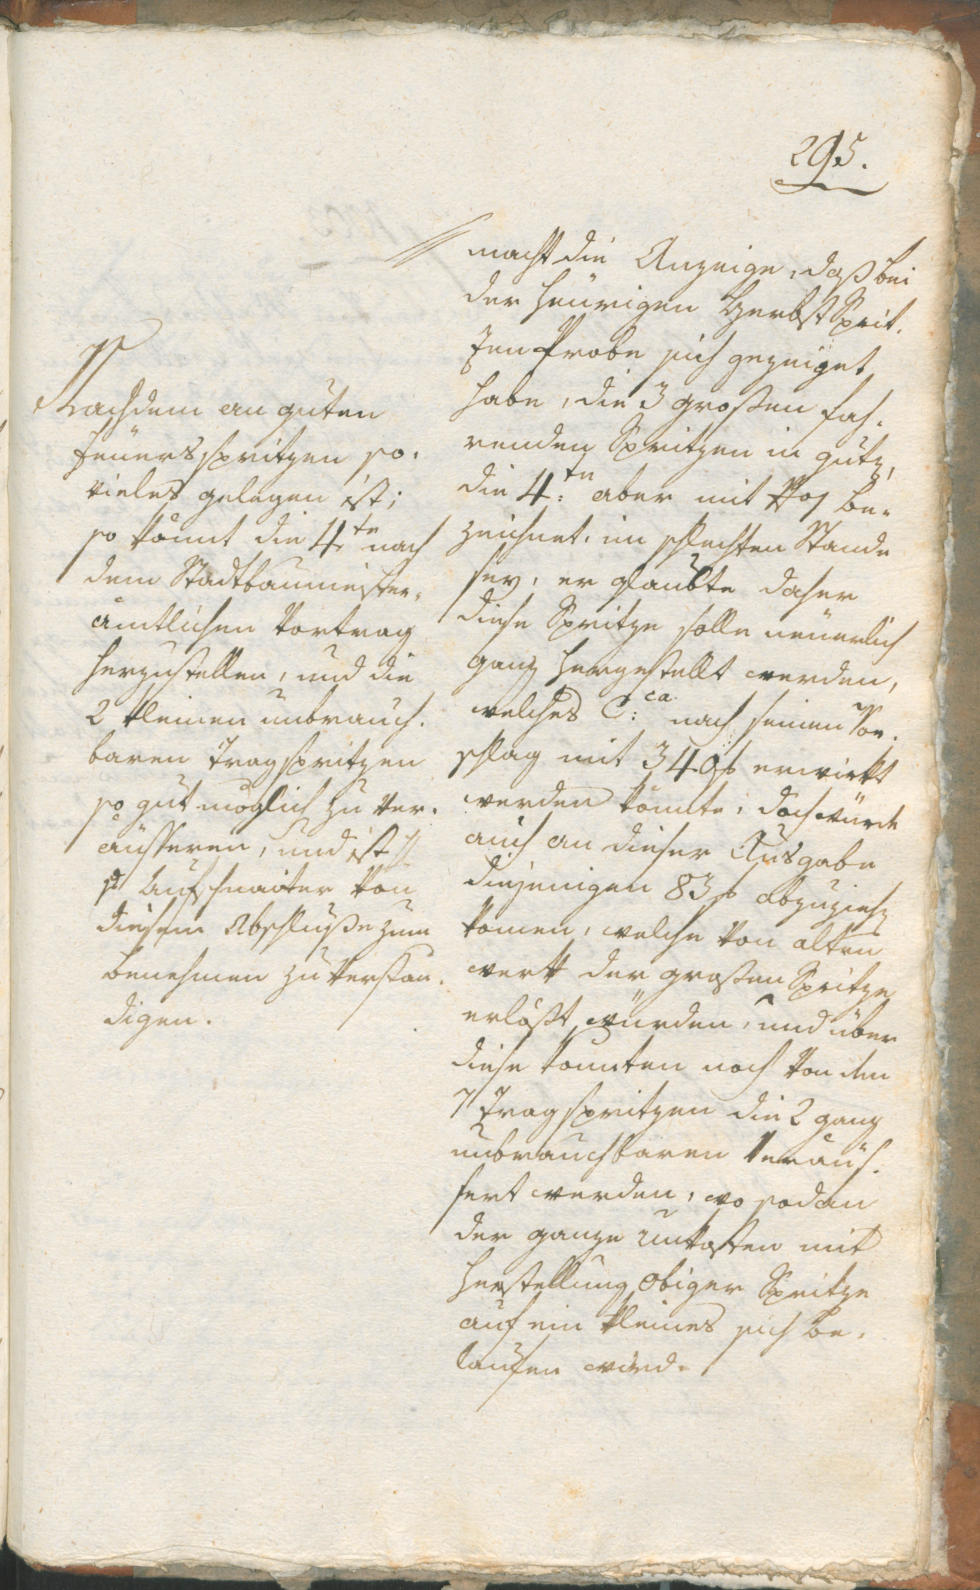 295.
macht die Anzeige, daß bei
der heurigen Herbst Sprit-
zen Probe sich gezeiget
habe, die 3 großen fah-
renden Spritzen in gutz,
die 4:te aber mit be-
zeichnet, im schlechten Stande
sey, er glaubte daher
diese Spritze solle neuerlich
ganz hergestellt werden,
welches C:ca nach seinen Vor-
schlag mit 340f erwirkt
werden könnte, doch würde
auch an dieser Ausgabe
diejenigen 83f abzuziehen
komen, welche von alten
werk der großen Spritze
erlößt würden, und über
diese könnten noch von den
7 Tragspritzen die 2 ganz
unbrauchbaren veräus-
sert werden, wo sodan
der ganze Unkosten mit
Herstellung obiger Spritze
auf ein kleines sich be-
laufen wird.
Nachdem an guten
Feuersspritzen so-
vieles gelegen ist;
so kömt die 4te nach
dem Stadtbaumeister-
amtlichen Vortrag
herzustellen, und die
2 kleinen unbrauch-
baren Tragspritzen
so gut möglich zu ver-
äusseren, und ist
Aufschnaiter von
diesem Abschluße zum
benehmen zu verstän-
digen.